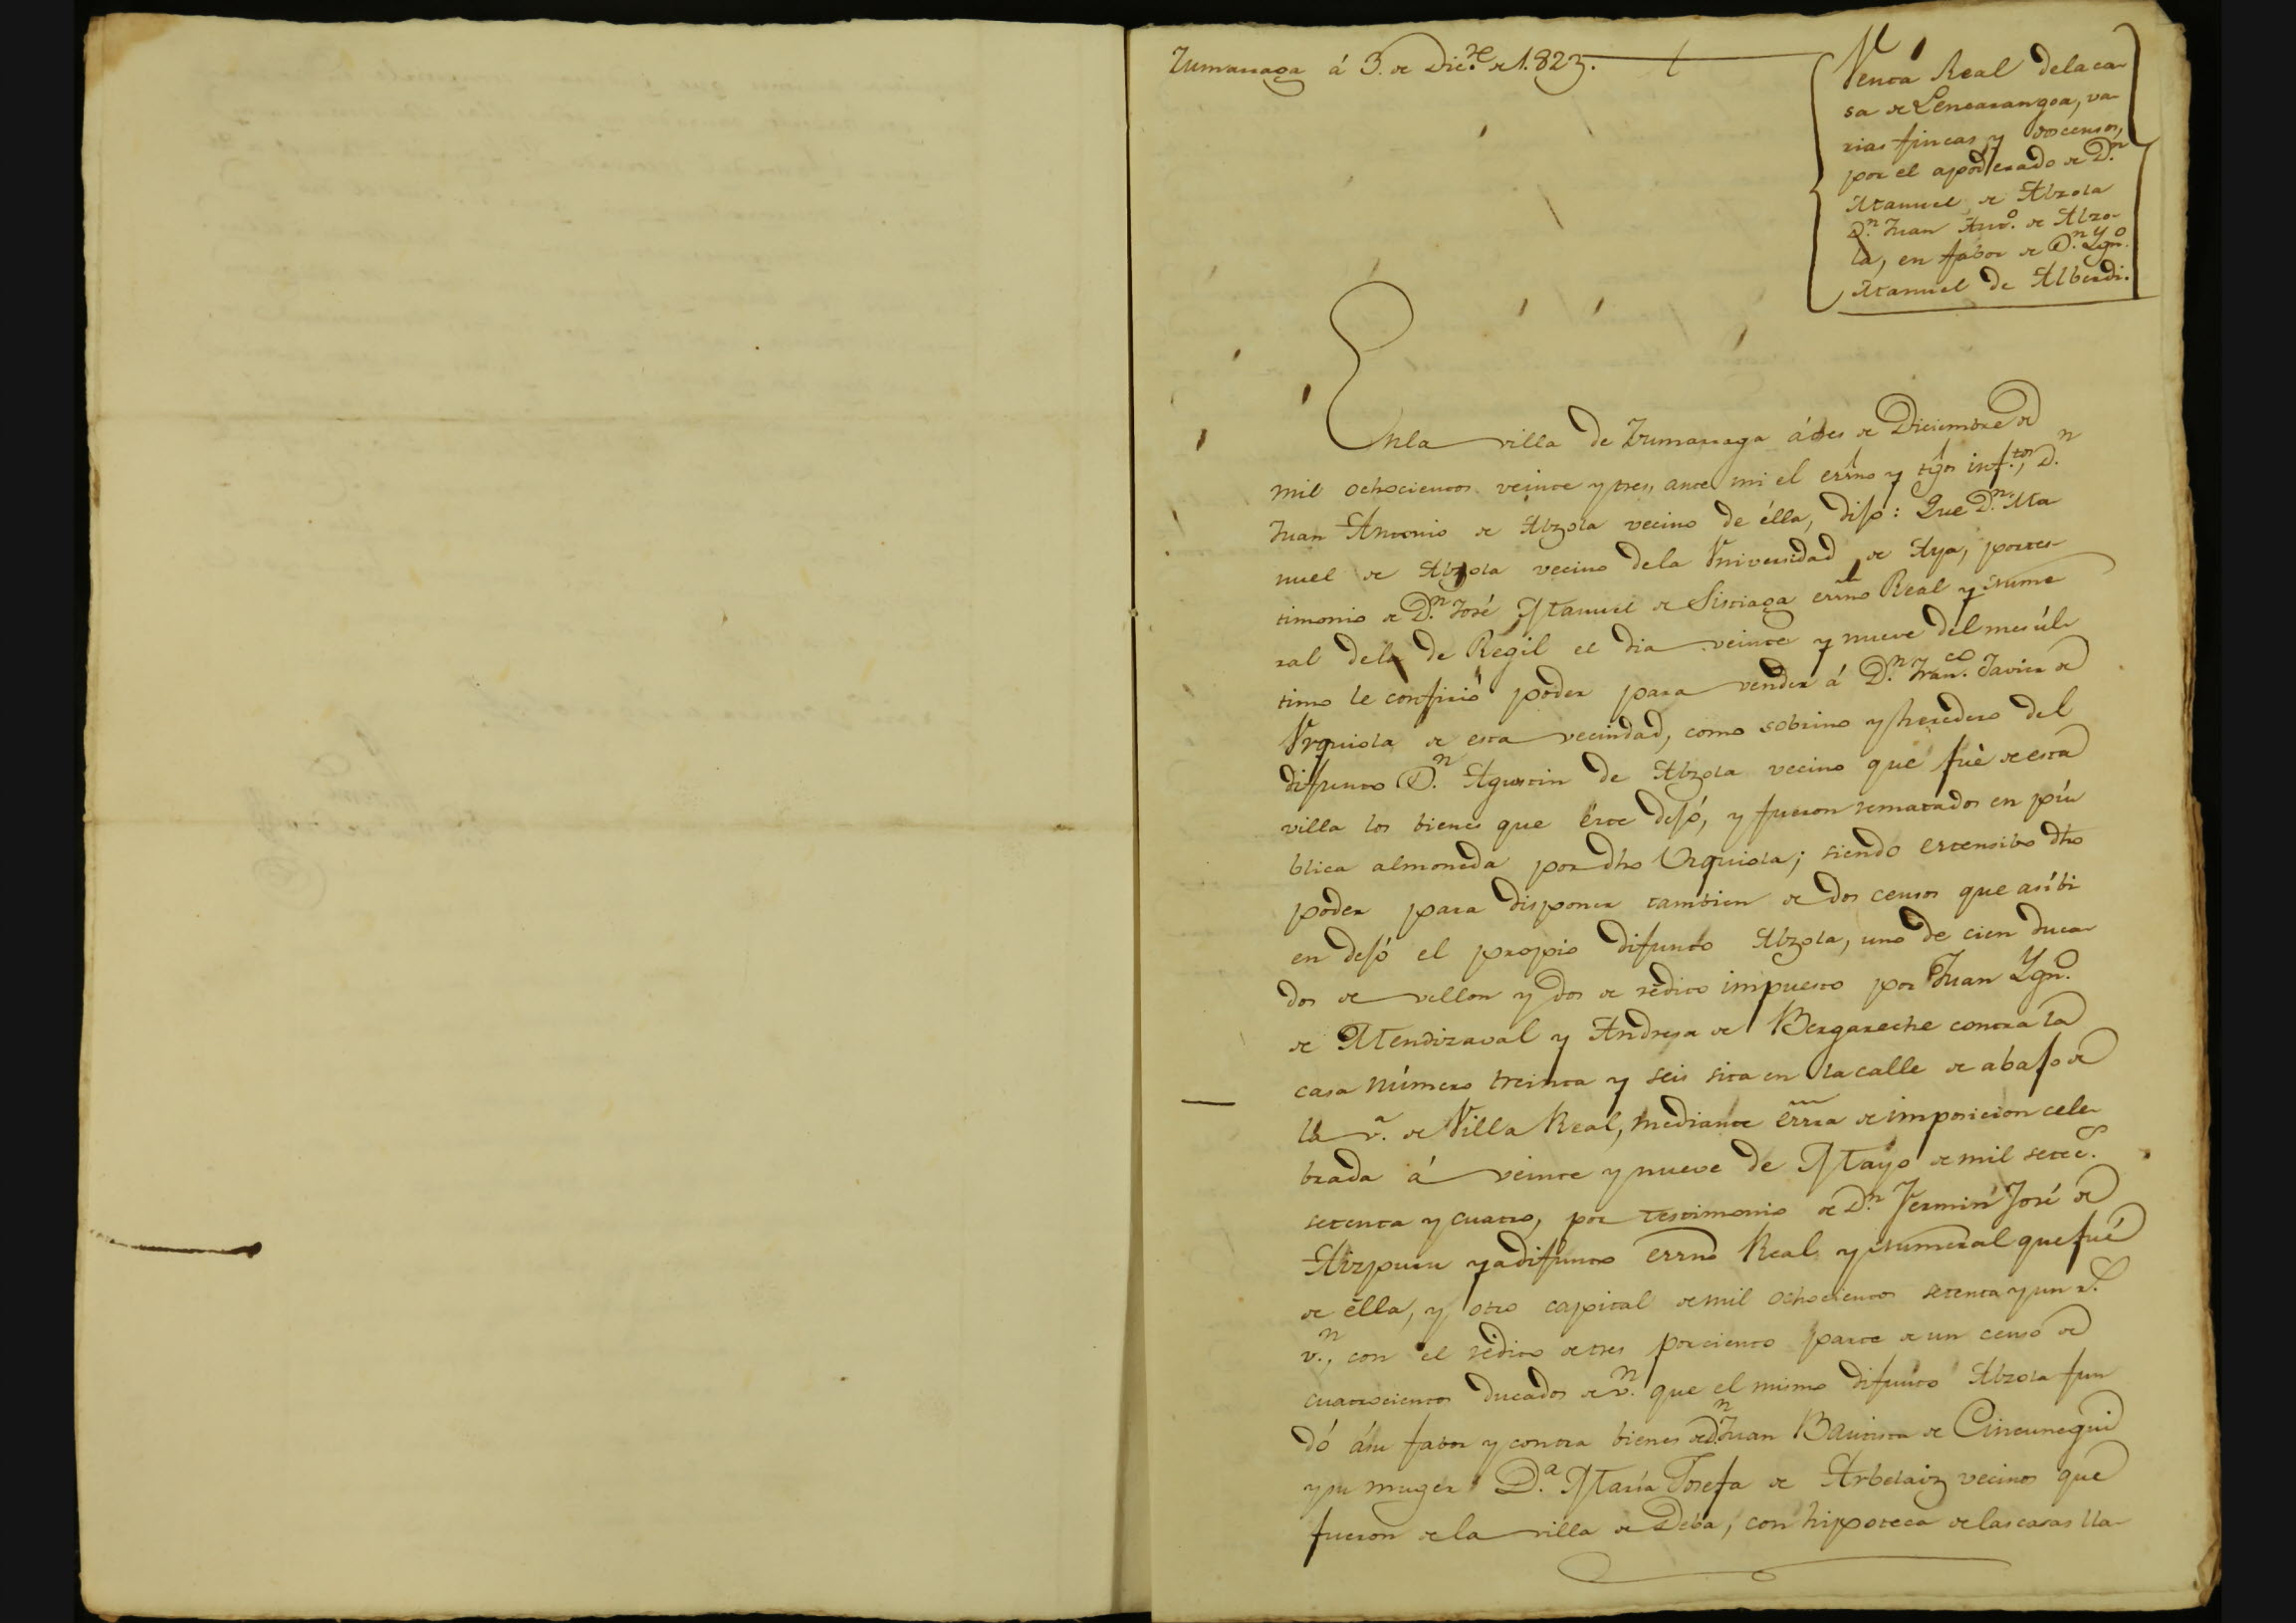 Zumarraga á 3. de Dic.re de 1.823.
Venta Real dela ca
sa de Lencarangoa, va
rias fincas, y dos censos,
por el apoderado de D.n
Manuel de Alzola
D.n Juan Ant.o de Alzo-
la, en fabor de D.n Ygn.o
Manuel de Alberdi.
Enla villa de Zumarraga á tres de Diciembre de
mil ochocientos veinte y tres, ante mi el errno y tgos inf.tos, D.n
Juan Antonio de Alzola vecino de élla, dijo: Que D.n Ma
nuel de Alzola vecino dela Universidad de Aya, por tes-
timonio de D.n José Manuel de Sistiaga errno Real y Nume
ral dela de Regil el dia veinte y nueve del mes úl
timo le confirió poder para vender á D.n Fran.co Javier de
Urquiola de esta vecindad, como sobrino y heredero del
difunto D.n Agustin de Alzola vecino que fué de esta
villa los bienes que éste dejó, y fueron rematados en pú
blica almoneda por dho Urquiola; siendo extensibo dho
poder para disponer tambien de dos censos que así bi
en dejó el propio difunto Alzola, uno de cien duca
dos de vellon y dos de rédito impuesto por Juan Ygn.o
de Mendizaval y Andresa de Bergareche contra la
casa número treinta y seis sita en la calle de abajo de
la v.a de Villa Real, mediante errra de imposicion cele
brada á veinte y nueve de Mayo de mil setec.s
setenta y cuatro, por testimonio de D.n Fermin José de
Aizpuru ya difunto errno Real y Numeral que fué
de élla, y otro capital de mil ochocientos setenta y un r.s
v.n, con el rédito de tres por ciento parte de un censo de
cuatrocientos ducados de v.n que el mismo difunto Alzola fun
dó á su fabor y contra bienes de D.n Juan Bautista de Cincunegui
y su muger D.a María Josefa de Arbelaiz vecinos que
fueron de la villa de Deba, con hipoteca de las casas lla-